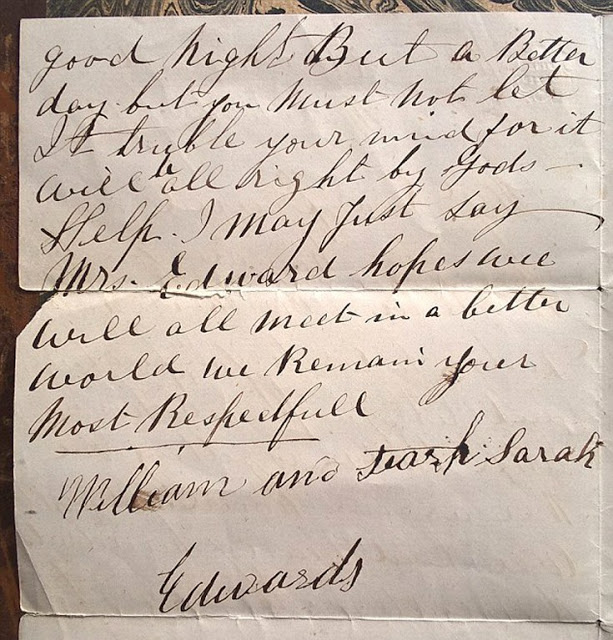 good Night But a Better
day but you Must Not let
It truble your mind for it
will be all right by Gods
Help. I may Just say
Mrs. Edward hopes wee
will all meet in a better
world we Remain your
Most Respectfull
William and Sarah
Edwards